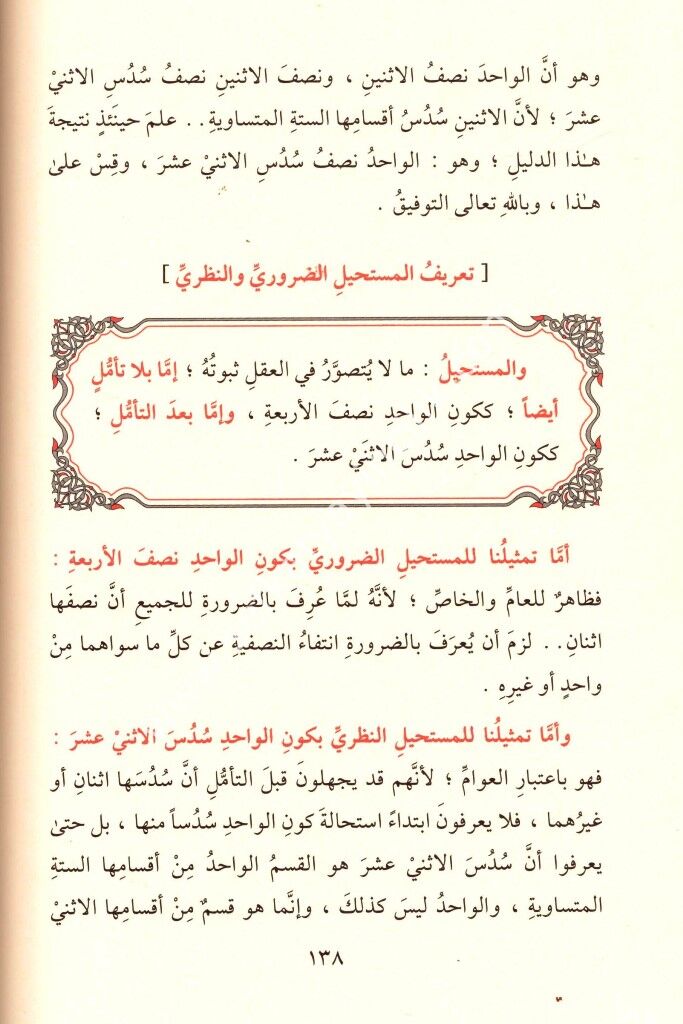 وهو أنَّ الواحدَ نصفُ الاثنينِ ، ونصفَ الاثنينِ نصفُ سُدُسِ الاثنيْ
عشرَ ؛ لأنَّ الاثنينِ سُدُسُ أقسامِها الستةِ المتساويةِ . . علمَ حينَئذٍ نتيجةَ
هـٰذا الدليلِ ؛ وهو : الواحدُ نصفُ سُدُسِ الاثنيْ عشرَ ، وقِسْ علىٰ
هـٰذا ، وباللهِ تعالى التوفيقُ .
[ تعريفُ المستحيلِ الضروريِّ والنظريِّ ]
والمستحيلُ : ما لا يُتصوَّرُ في العقلِ ثبوتُهُ ؛ إمَّا بلا تأمُّلٍ
أيضاً ؛ ككونِ الواحدِ نصفَ الأربعةِ ، وإمَّا بعدَ التأمُّلِ ؛
ككونِ الواحدِ سُدُسَ الاثنَيْ عشرَ .
أمَّا تمثيلُنا للمستحيلِ الضروريِّ بكونِ الواحدِ نصفَ الأربعةِ :
فظاهرٌ للعامِّ والخاصِّ ؛ لأنَّهُ لمَّا عُرِفَ بالضرورةِ للجميعِ أنَّ نصفَها
اثنانِ . . لزمَ أن يُعرَفَ بالضرورةِ انتفاءُ النصفيةِ عن كلِّ ما سواهما مِنْ
واحدٍ أو غيرِهِ .
وأمَّا تمثيلُنا للمستحيلِ النظريِّ بكونِ الواحدِ سُدُسَ الاثنيْ عشرَ :
فهو باعتبارِ العوامِّ ؛ لأنَّهم قد يجهلونَ قبلَ التأمُّلِ أنَّ سُدُسَها اثنانِ أو
غيرُهما ، فلا يعرفونَ ابتداءً استحالةَ كونِ الواحدِ سُدُساً منها ، بل حتىٰ
يعرفوا أنَّ سُدُسَ الاثنيْ عشرَ هو القسمُ الواحدُ مِنْ أقسامِها الستةِ
المتساويةِ ، والواحدُ ليسَ كذلكَ ، وإنَّما هو قسمٌ مِنْ أقسامِها الاثنيْ
١٣٨